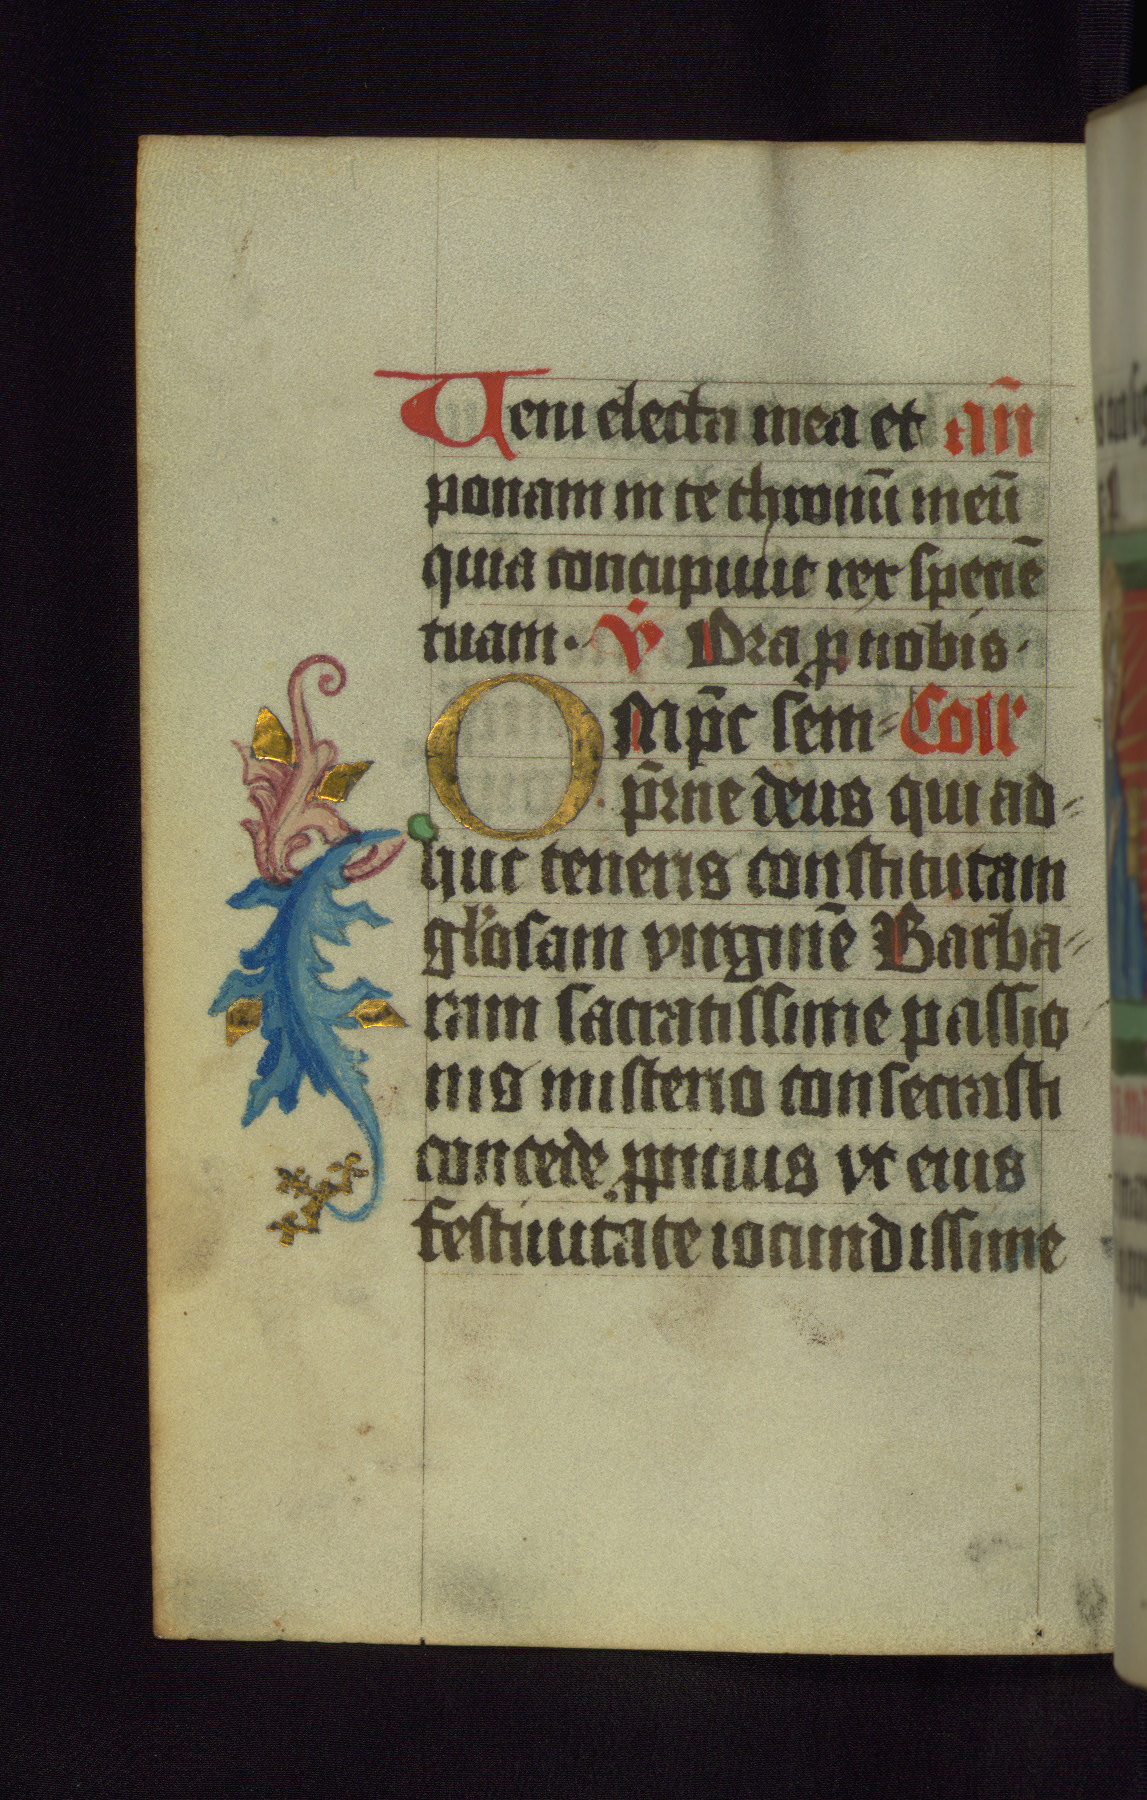 Veni electa mea et añ
ponam in te thronū meū
quia concupiuit rex speciē
tuam. ℣ Ora ꝓ nobis.
OMp̄c sēm= Coll'
p̄rne deus qui ad=
huc teneris constitutam
gl'osam virginē Barba=
ram sacratissime passio
nis misterio consecrasti
concede ꝓpicius vt eius
festiuitate iocundissime